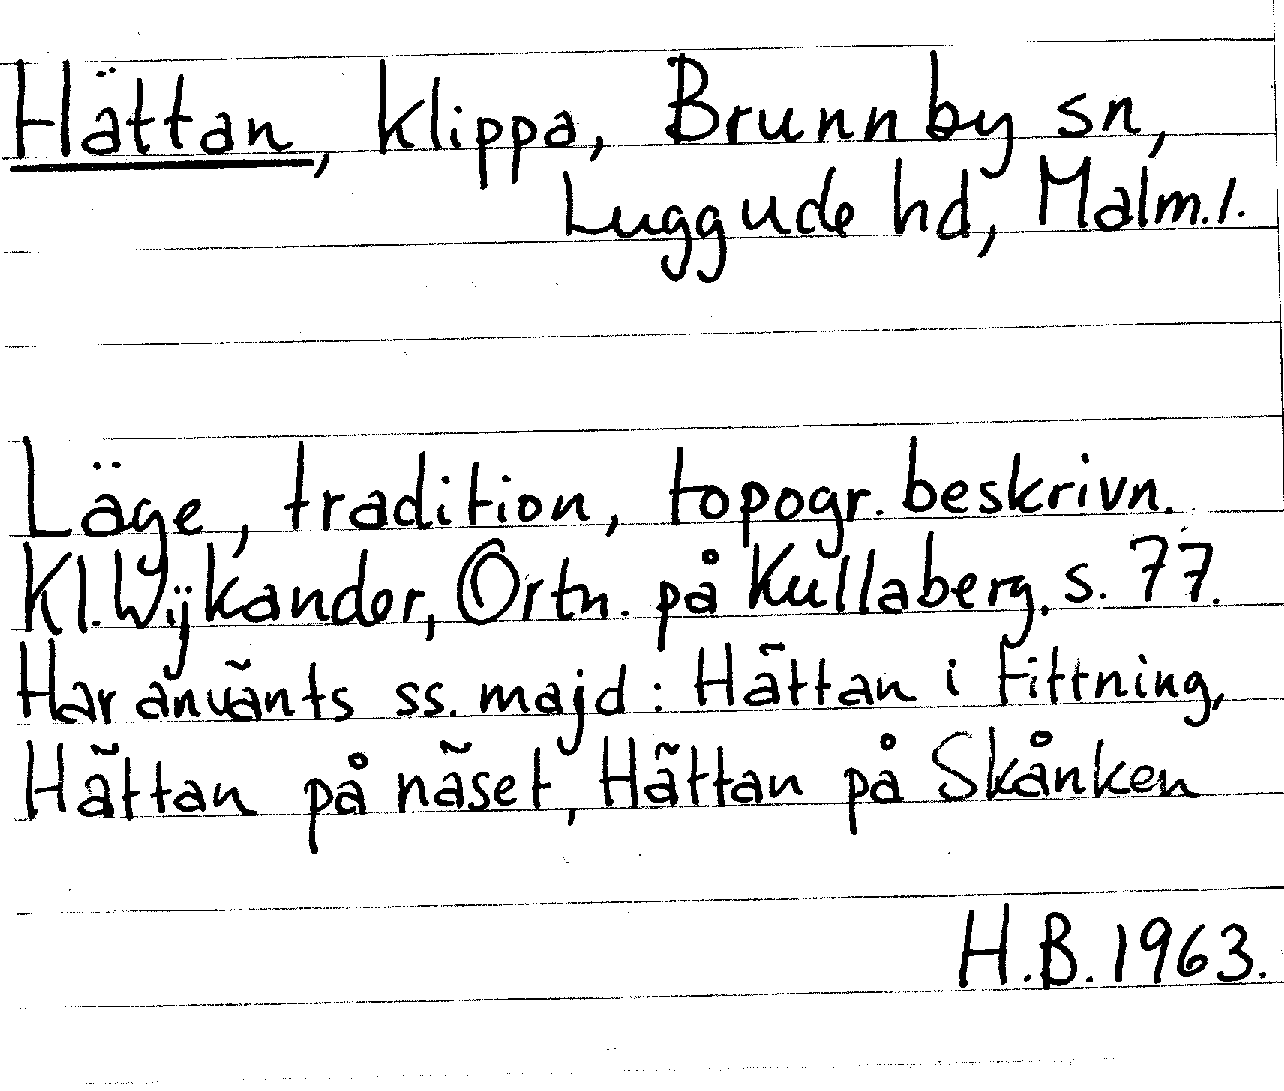 Hättan, klippa, Brunnby sn,
Luggude hd, Malm.l.
Läge, tradition, topogr. beskrivn.
Kl. Wijkander, Ortn. på Kullaberg. s. 77.
Har använts ss. majd: Hättan i Fittning,
Hättan på näset, Hättan på Skånken
H.B. 1963.